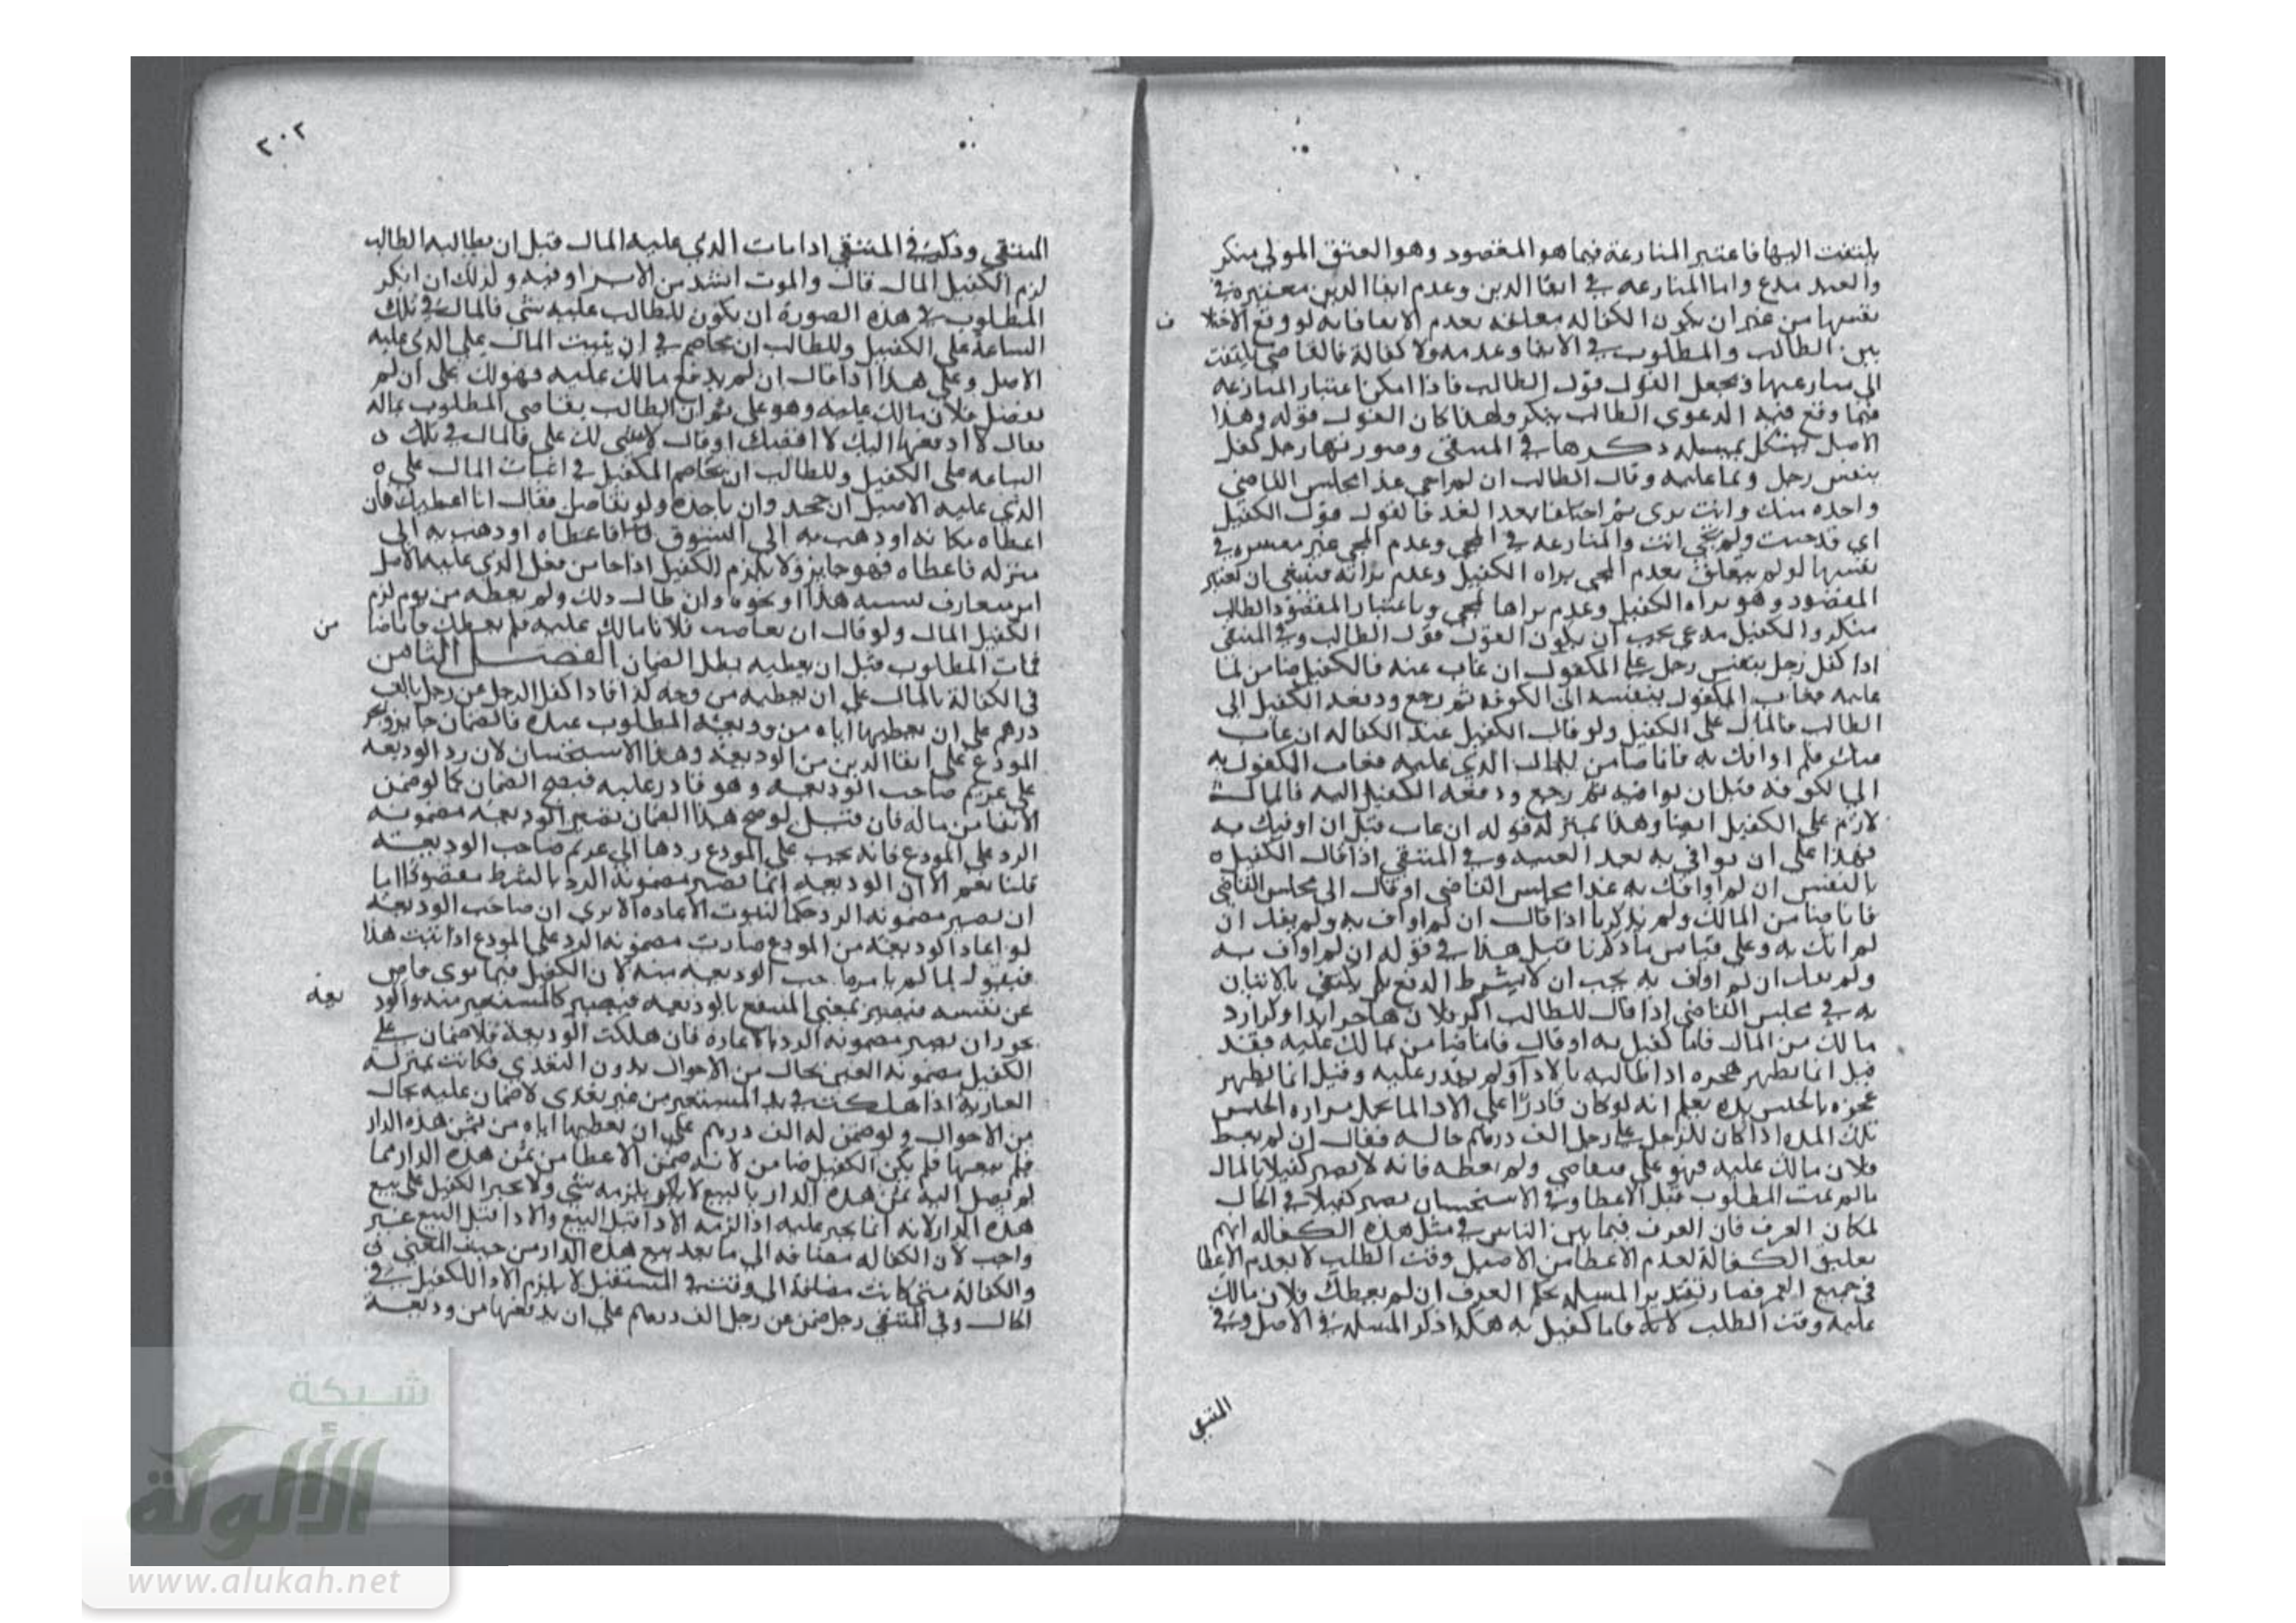 يلتفت اليها فاعتبر المنازعة فيما هو المقصود وهو العتق المولي ينكر
والعبد مدع واما المنازعه في ايفا الدين وعدم ايفا الدين معتبرة في
نفسها من غير ان يكون الكفاله معلقه بعدم الايفا فانه لو وقع الاختلا
ف
بين الطالب والمطلوب في الايفا وعدمه ولا كفالة فالقاضي يلتفت
الى منازعتهما فيجعل القول قول الطالب فاذا امكن اعتبار المنازعه
فيما وقع فيه الدعوى الطالب ينكر ولهذا كان القول قوله وهذا
الاصل يشكل بمسيله ذكرها في المنتقى وصورتها رجل كفل
بنفس رجل وبما عليه وقال الطالب ان لم غدا مجلس القاضي
واحده منك وانت برى ثم اختلفا بعد الغد فالقول قول الكفيل
اي قد جيت ولم تجي انت والمنازعه في المجي وعدم المجي غير معتبره في
نفسها لو لم يتعلق بعدم المجى براه الكفيل وعدم براته فينبغي ان تعتبر
المقصود وهو براه الكفيل وعدم براها لمجي وباعتبار المقصود الطالب
منكر والكفيل مدعي يجب ان يكون القول قول الطالب وفي المنتقى
اذا كفل رجل بنفس رجل على المكفول ان غاب عنه فالكفيل ضامن لما
عليه فغاب المكفول بنفسه الى الكوفه ثم رجع ودفعه الكفيل الى
الطالب فالمال على الكفيل ولو قال الكفيل عند الكفاله ان غاب
منك فلم اوافك به فانا ضامن للمال الذي عليه فغاب المكفول به
الي الكوفه قبل ان يوافيه ثم رجع ودفعه الكفيل اليه فالمال
لازم على الكفيل ايضا وهذا بمنزله قوله ان غاب قبل ان اوفيك به
فهذا على ان يوافي به بعد الغيبه وفي المنتقي اذا قال الكفيل
بالنفس ان لم اوافك به غدا مجلس القاضي او قال الى مجلس القاضي
فانا ضامن المالك ولم يذكر ما اذا قال ان لم اواف به ولم يقل ان
لم اتك به وعلى قياس ما ذكرنا قبل هذا في قوله ان لم اواف به
ولم يقل ان لم اواف به يجب ان لا يشرط الدفع بل يكتفي بالاتيان
به في مجلس القاضي اذا قال للطالب اكر فلان
مالك من المال فانا كفيل به او قال فانا ضامن بمالك عليه فقد
قيل انما يظهر عجزه اذا طالبه بالاداء ولم يقدر عليه وقيل انما يظهر
عجزه بالحبس مده يعلم انه لو كان قادرا على الادا لما تحمل مراره الحبس
تلك المده اذا كان للرجل على رجل الف درهم حاله فقال ان لم يعط
فلان مالك عليه فهو علي فتقاضي ولم يعطه فانه لا يصير كفيلا بالمال
ما لم يمت المطلوب قبل الاعطا وفي الاستحسان يصير كفيلا في الحال
لمكان العرف فان العرف فيما بين الناس في مثل هذه الكفاله انهم
تعليق الكفالة لعدم الاعطا من الاصيل وقت الطلب لا بعدم الاعطا
في جميع العمر فصار تقدير المسيله بحكم العرف ان لم يعطك فلان مالك
عليه وقت الطلب فانا كفيل به هكذا ذكر المسله في الاصل وفي
المنتقي
٢٠٢
المنتقي وذكر في المنتقي اذا مات الذي عليه المال قبل ان يطالبه الطالب
لزم الكفيل المال قال والموت اشد من ولذلك ان انكر
المطلوب في هذه الصورة ان يكون للطالب عليه شي فالمال في تلك
الساعة على الكفيل وللطالب ان يخاصم في ان يثبت المال على الذي عليه
الاصل وعلى هذا اذا قال ان لم يدفع مالك عليه فهو لك على ان لم
فلان مالك عليه وهو علي ثم ان الطالب تقاضى المطلوب بماله
فقال لا ادفعها اليك لا اقضيك او قال لا شي لك علي فالمال في تلك
الساعه على الكفيل وللطالب ان يخاصم الكفيل في اثبات المال على
الذي عليه الاصيل ان جحد وان ياخذه ولو تقاضاه فقال انا اعطيك فان
اعطاه مكانه او ذهب به الى السوق فاعطاه او ذهب به الى
منزله فاعطاه فهو جايز ولا يلزم الكفيل اذا جا من فعل الذي عليه الاصل
امر يتعارف هذا او نحوه وان طال ذلك ولم يعطه من يوم لزم
الكفيل المال ولو قال ان تقاضيت فلانا مالك عليه فلم يعطك فانا ضا
من
فمات المطلوب قبل ان يعطيه بطل الضمان الفصل الثامن
في الكفالة بالمال على ان يعطيه من وجه كذا فاذا كفل الرجل عن رجل بالف
درهم على ان يعطيها اياه من وديعة المطلوب عنده فالضمان جايز ويجبر
المودع على ايفا الدين من الوديعة وهذا الاستحسان لان رد الوديعه
على غريم صاحب الوديعه وهو قادر عليه فيصح الضمان كما لو ضمن
الايفا من ماله فان قيل لو صح هذا الضمان تصير الوديعه مضمونه
الرد على المودع فانه يجب على المودع ردها الى غريم صاحب الوديعة
قلنا نعم الا ان الوديعه انما تصير مضمونه الرد بالشرط مقصودا اما
ان تصير مضمونه الرد حكما لثبوت الاعاده الا ترى ان صاحب الوديعة
لو اعاد الوديعه من المودع صارت مضمونه الرد على المودع اذا ثبت هذا
فيقول لما لم يامر صاحب الوديعه منه لان الكفيل فيما نوى قاض
عن نفسه فيصير بمعنى المنتفع بالوديعه فيصير كالمستعير منه والود
يعه
يجوز ان تصير مضمونه الرد بالاعاره فان هلكت الوديعة فلا ضمان على
الكفيل مضمونه العين بحال من الاحوال بدون التعدي فكانت بمنزله
العارية اذا هلكت في يد المستعير من غير تعدى لا ضمان عليه بحال
من الاحوال ولو ضمن له الف درهم على ان يعطيها اياه من ثمن هذه الدار
فلم يبعها فلم يكن الكفيل ضامن لانه ضمن الاعطا من ثمن هذه الدار فما
لم يصل اليه ثمن هذه الدار بالبيع لا يلزمه شي ولا يجبر الكفيل على بيع
هذه الدار لانه انما يجبر عليه اذا لزمه الادا قبل البيع والادا قبل البيع غير
واجب لان الكفاله مضافه الى ما بعد بيع هذه الدار من حيث المعنى
والكفالة متى كانت مضافة الى وقت في المستقبل لا يلزم الادا للكفيل في
الحال وفي المنتقي رجل ضمن عن رجل الف درهم على ان يدفعها من وديعة
شبكة
الألوكة
www.alukah.net